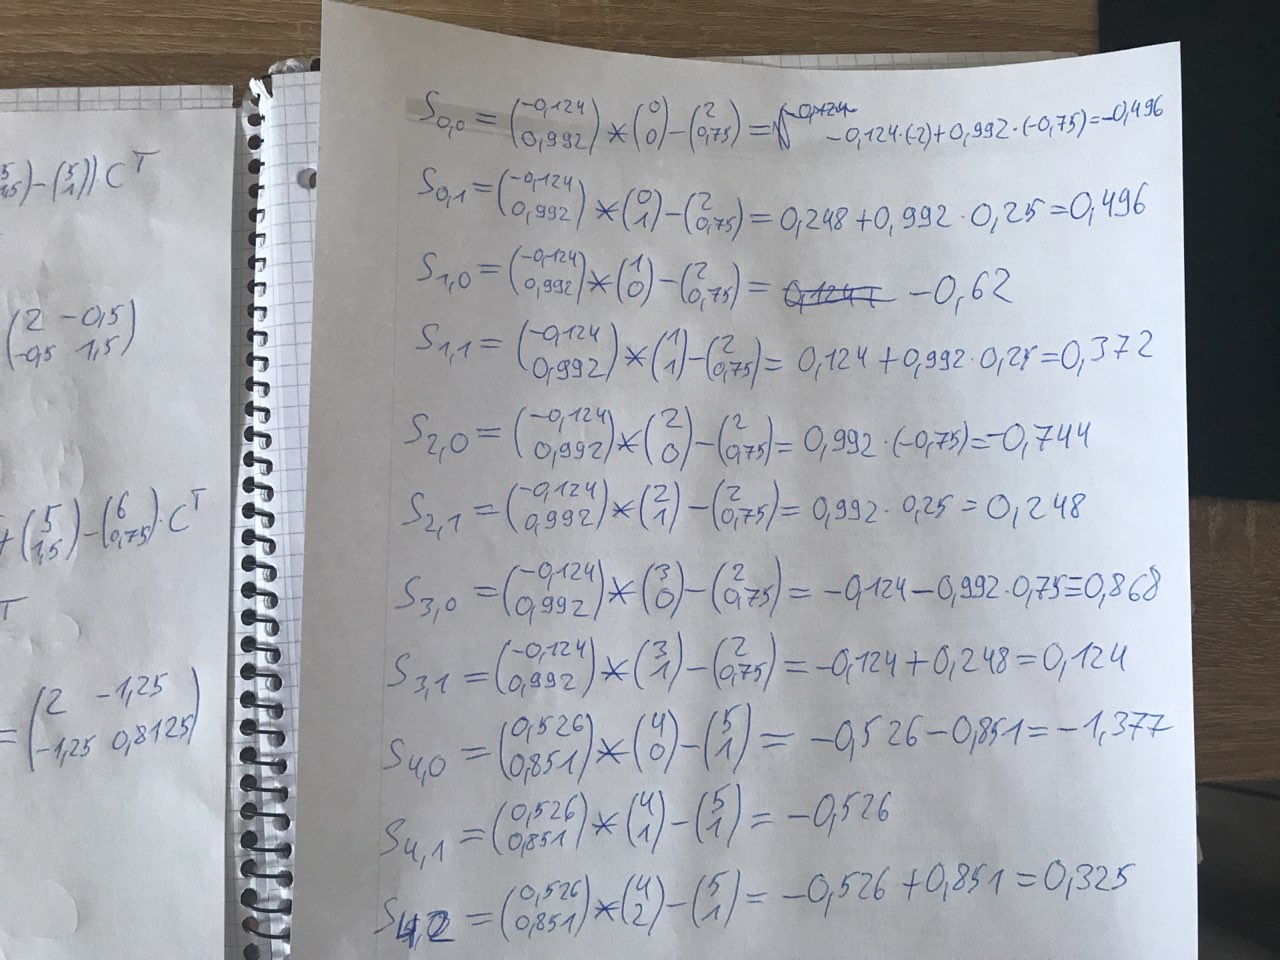 5 1,5) − (5 1)) C^T
(2 −0,5 −0,5 1,5)
+ (5 1,5) − (6 0,75) · C^T
T
= (2 −1,25 −1,25 0,8125)
S0,0 = (−0,124 0,992) * (0 0) − (2 0,75) = −0,124·(−2)+0,992·(−0,75)=−0,496
S0,1 = (−0,124 0,992) * (0 1) − (2 0,75) = 0,248 + 0,992 · 0,25 = 0,496
S1,0 = (−0,124 0,992) * (1 0) − (2 0,75) = −0,62
S1,1 = (−0,124 0,992) * (1 1) − (2 0,75) = 0,124 + 0,992 · 0,25 = 0,372
S2,0 = (−0,124 0,992) * (2 0) − (2 0,75) = 0,992 · (−0,75) = −0,744
S2,1 = (−0,124 0,992) * (2 1) − (2 0,75) = 0,992 · 0,25 = 0,248
S3,0 = (−0,124 0,992) * (3 0) − (2 0,75) = −0,124 − 0,992 · 0,75 = 0,868
S3,1 = (−0,124 0,992) * (3 1) − (2 0,75) = −0,124 + 0,248 = 0,124
S4,0 = (0,526 0,851) * (4 0) − (5 1) = −0,526 − 0,851 = −1,377
S4,1 = (0,526 0,851) * (4 1) − (5 1) = −0,526
S4,2 = (0,526 0,851) * (4 2) − (5 1) = −0,526 + 0,851 = 0,325